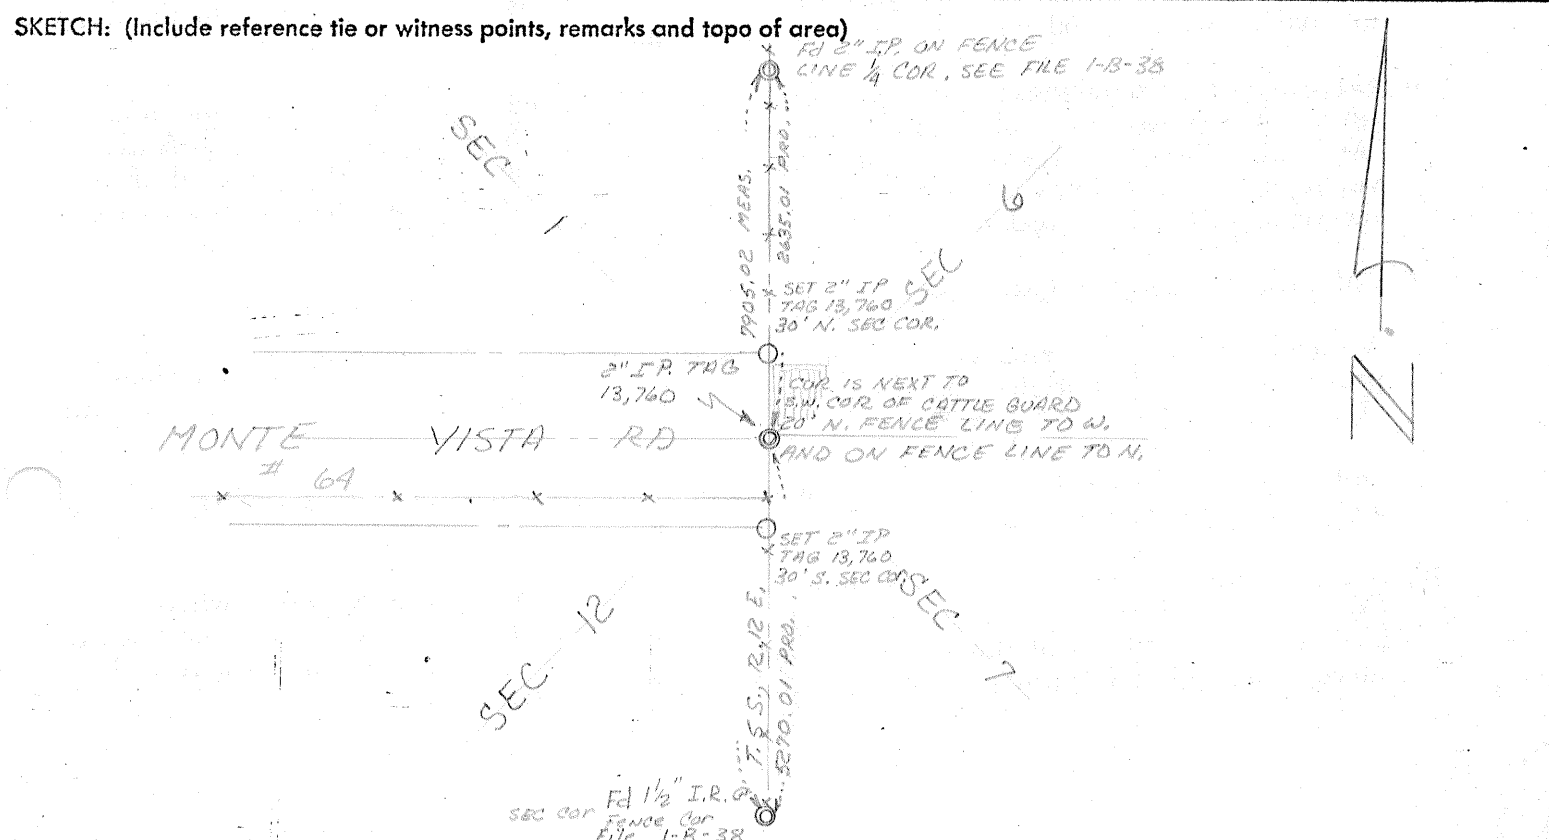 SKETCH: (Include reference tie or witness points, remarks and topo of area)
Fd 2" I.P. ON FENCE
LINE 1/4 COR. SEE FILE 1-B-38
SEC 1
SEC 6
7905.02 MEAS.
2635.01 PRO.
SET 2" IP
TAG 13,760
30' N. SEC COR.
2" I.P. TAG
13,760
COR IS NEXT TO
S.W. COR OF CATTLE GUARD
20' N. FENCE LINE TO W.
AND ON FENCE LINE TO N.
MONTE VISTA RD
# 64
N
SET 2" IP
TAG 13,760
30' S. SEC COR.
SEC 12
SEC 7
T.5S., R.12E.
5270.01 PRO.
SEC COR Fd 1 1/2" I.R. @
FENCE COR
File 1-B-38